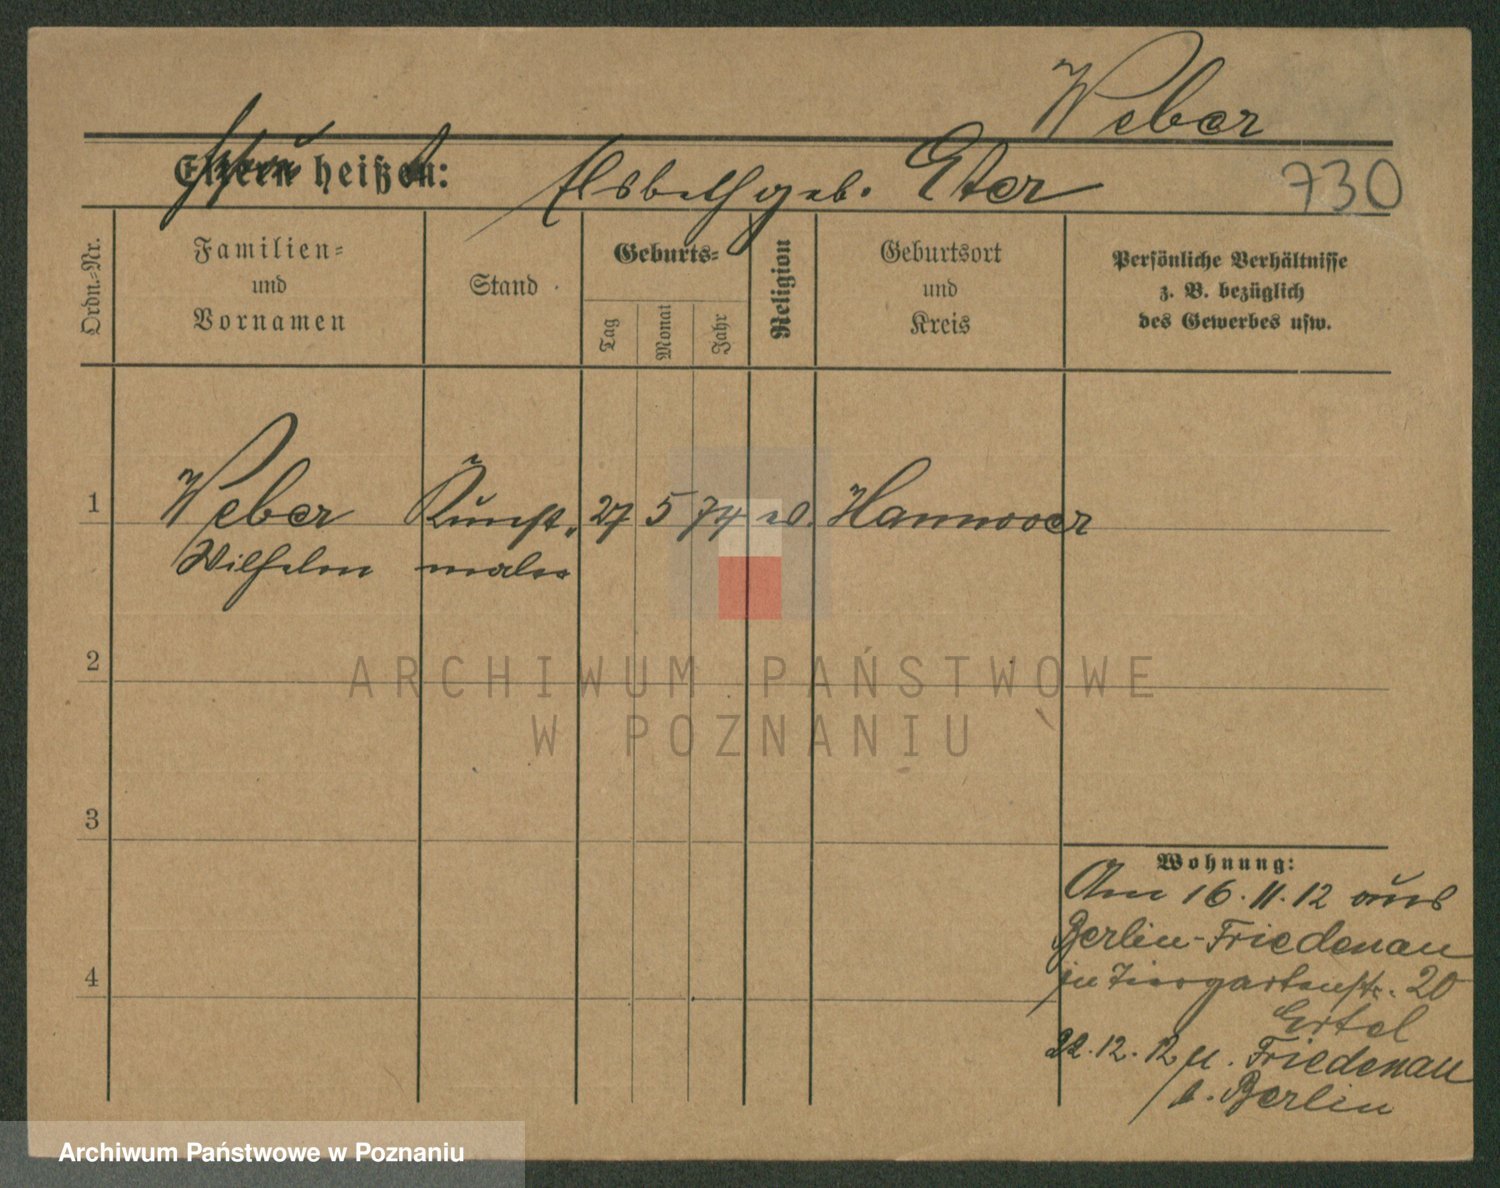 Weber
Eltern heißen: Elsbeth geb. Eter
730
Ordn.-Nr.
Familien-
und
Vornamen
Stand
Geburts-
Tag
Monat
Jahr
Religion
Geburtsort
und
Kreis
Persönliche Verhältnisse
z. B. bezüglich
des Gewerbes usw.
1 Weber Kunst- 27 5 74 ev. Hannover
Wilhelm maler
2
3
4
Wohnung:
Am 16.11.12 aus
Berlin-Friedenau
in Tiergartenstr. 20
Ertel
22.12.12 n. Friedenau
b. Berlin
ARCHIWUM PAŃSTWOWE
W POZNANIU
Archiwum Państwowe w Poznaniu